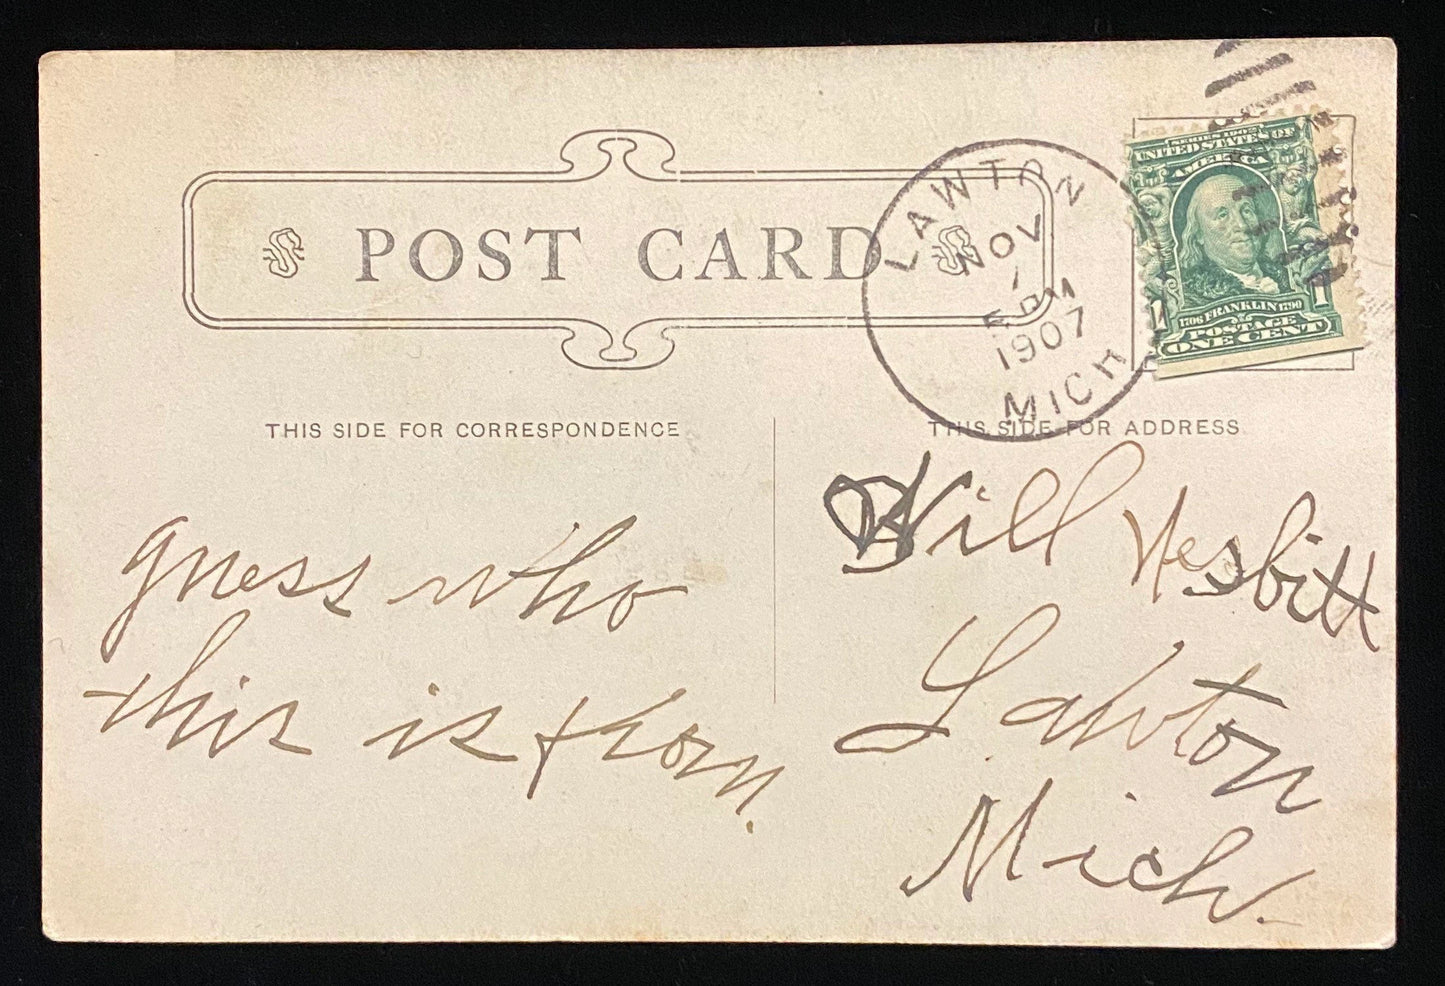 POST CARD
LAWTON
NOV
1
5 PM
1907
MICH
SERIES 1902
UNITED STATES OF
AMERICA
1706 FRANKLIN 1790
POSTAGE
1 ONE CENT 1
THIS SIDE FOR CORRESPONDENCE
guess who
this is from.
THIS SIDE FOR ADDRESS
Will Nesbitt
Lawton
Mich.